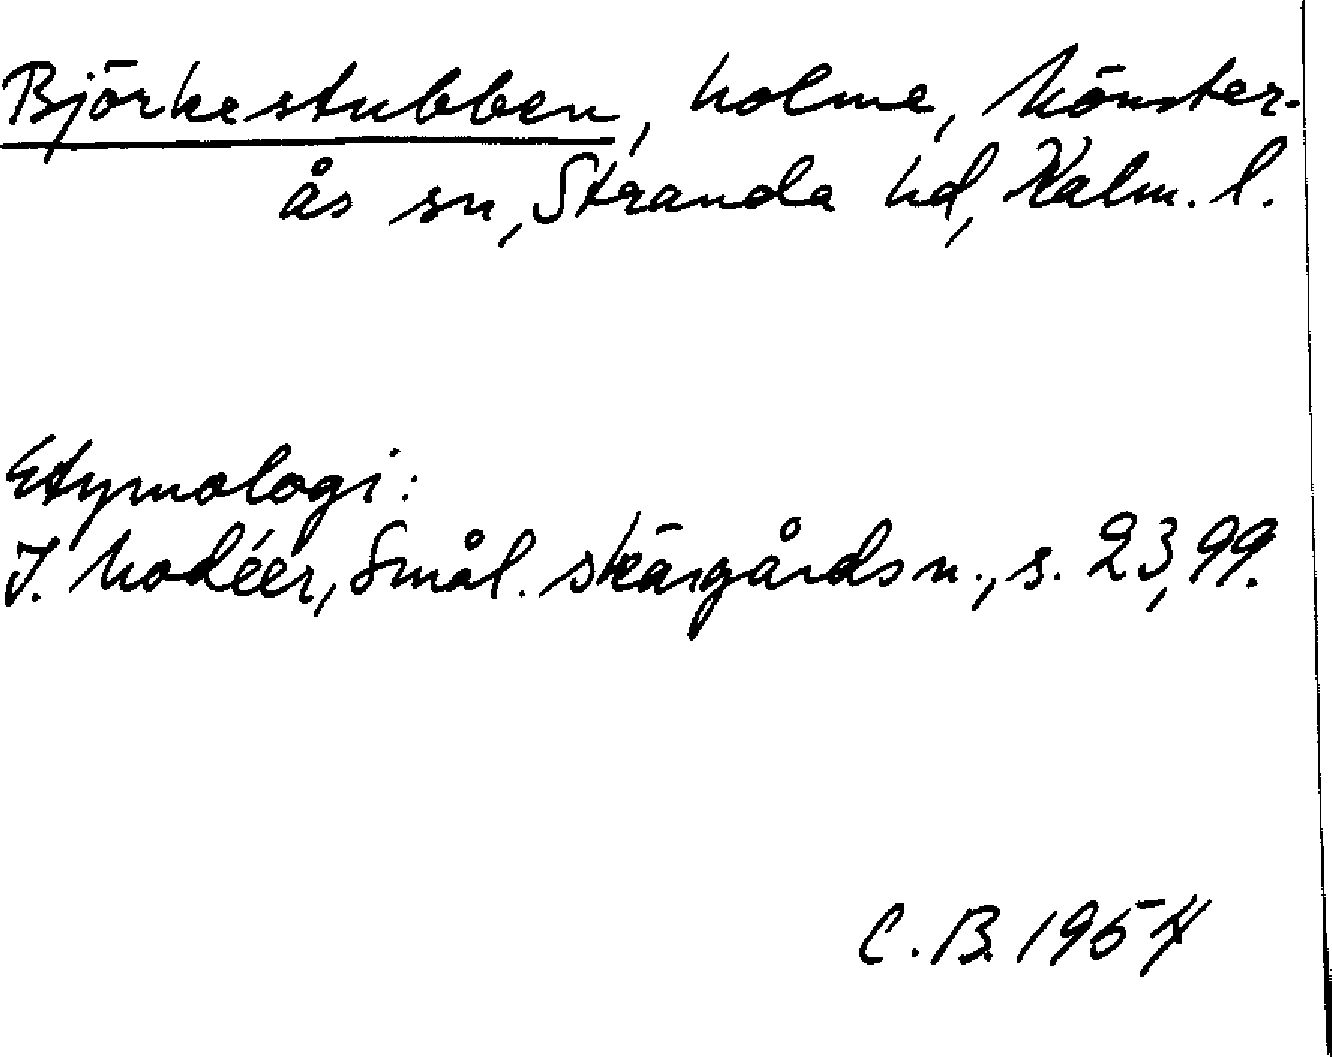 Björkestubben, holme, Mönster-
ås sn, Stranda hd, Kalm. l.
Etymologi:
I. Modéer, Smål. skärgårdsn., s. 23, 99.
C. B. 1954